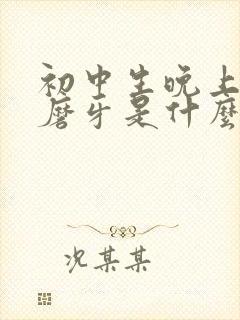 初中生晚上
磨牙是什麼
况某某